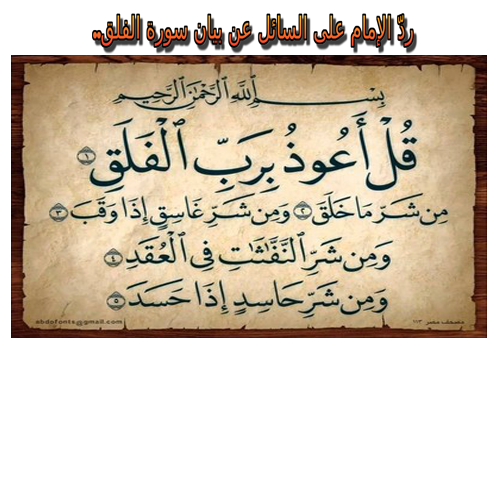 ردّ الإمام على السائل عن بيان سورة الفلق..
بِسْمِ ٱللَّهِ ٱلرَّحْمَٰنِ ٱلرَّحِيمِ
قُلْ أَعُوذُ بِرَبِّ ٱلْفَلَقِ ١
مِن شَرِّ مَا خَلَقَ ٢ وَمِن شَرِّ غَاسِقٍ إِذَا وَقَبَ ٣
وَمِن شَرِّ ٱلنَّفَّٰثَٰتِ فِى ٱلْعُقَدِ ٤
وَمِن شَرِّ حَاسِدٍ إِذَا حَسَدَ ٥
abdofonts@gmail.com